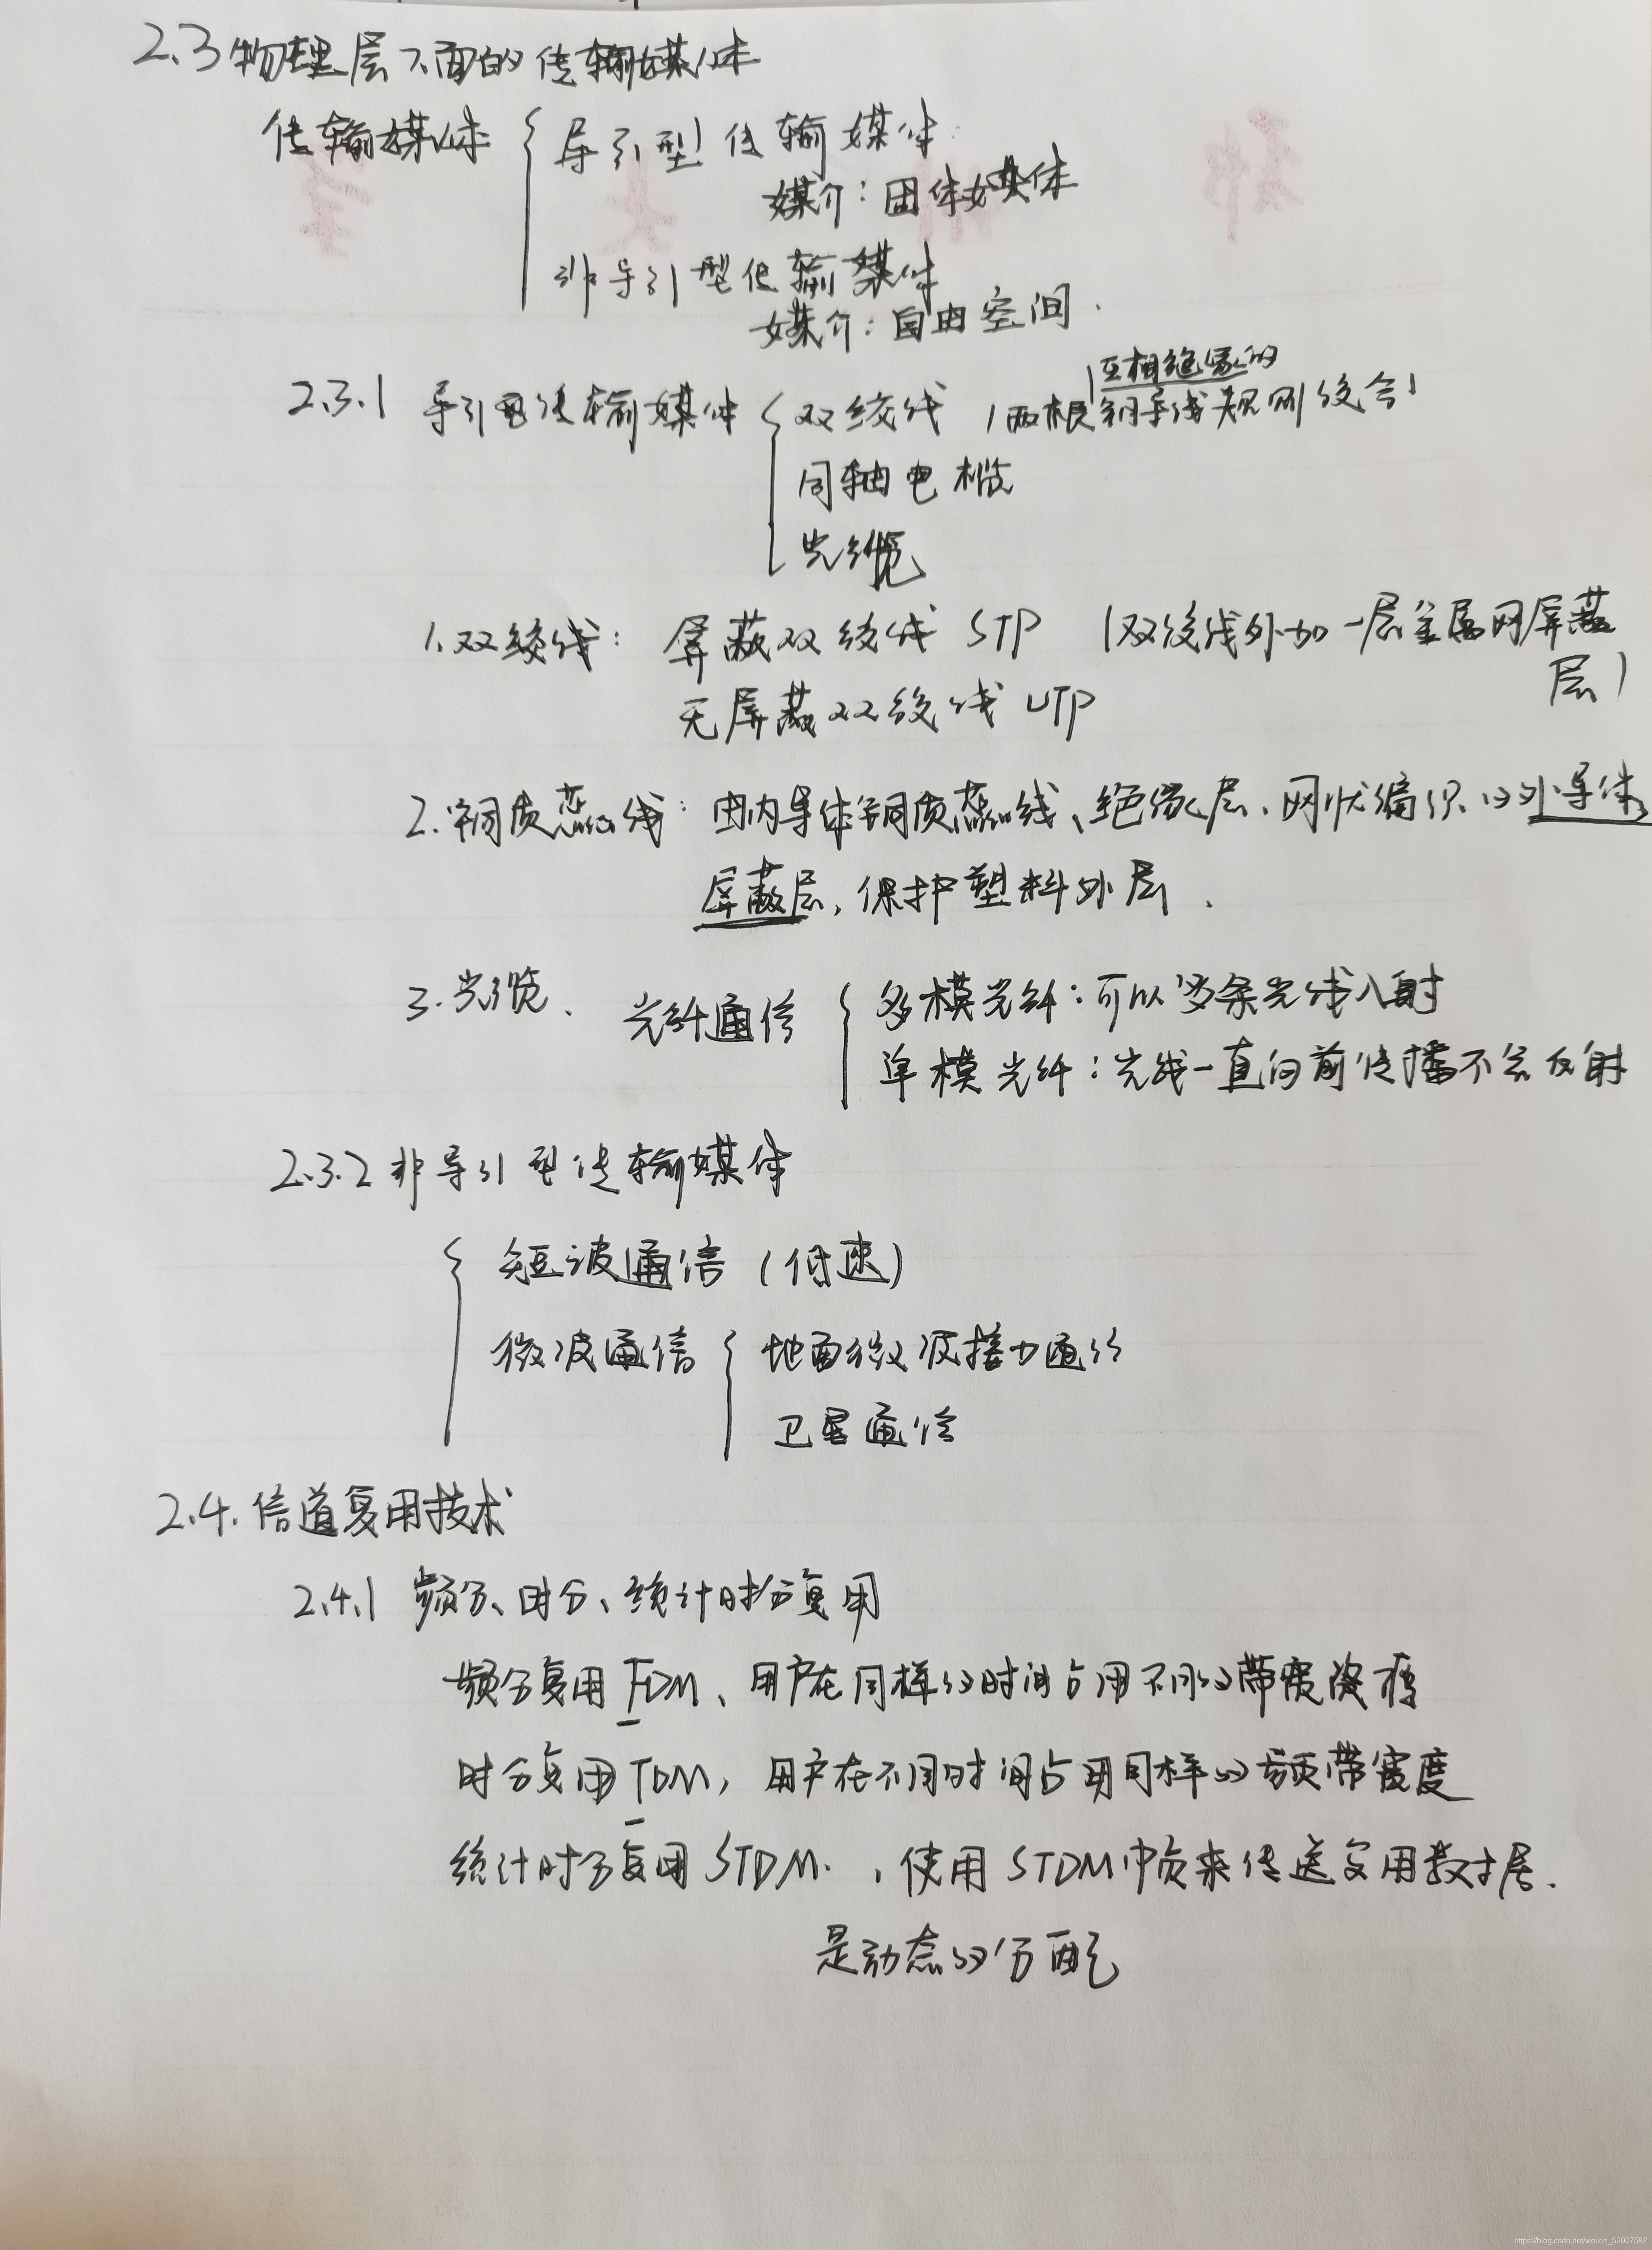 2.3 物理层下面的传输媒体
传输媒体
导引型传输媒体
媒介：固体媒体
非导引型传输媒体
媒介：自由空间.
2.3.1 导引型传输媒体
双绞线
互相绝缘的
(两根铜导线规则绞合)
同轴电缆
光缆
1.双绞线：屏蔽双绞线 STP (双绞线外加一层金属网屏蔽
层)
无屏蔽双绞线 UTP
2.铜质芯线：由内导体铜质芯线、绝缘层、网状编织的外导体
屏蔽层,保护塑料外层.
3.光缆、光纤通信
多模光纤：可以多条光线入射
单模光纤：光线一直向前传播不会反射
2.3.2 非导引型传输媒体
短波通信 (低速)
微波通信
地面微波接力通信
卫星通信
2.4.信道复用技术
2.4.1 频分、时分、统计时分复用
频分复用 FDM、用户在同样的时间占用不同的带宽资源
时分复用 TDM,用户在不同时间占用同样的频带宽度
统计时分复用 STDM.,使用 STDM帧来传送复用数据.
是动态的分配
https://blog.csdn.net/weixin_52007582